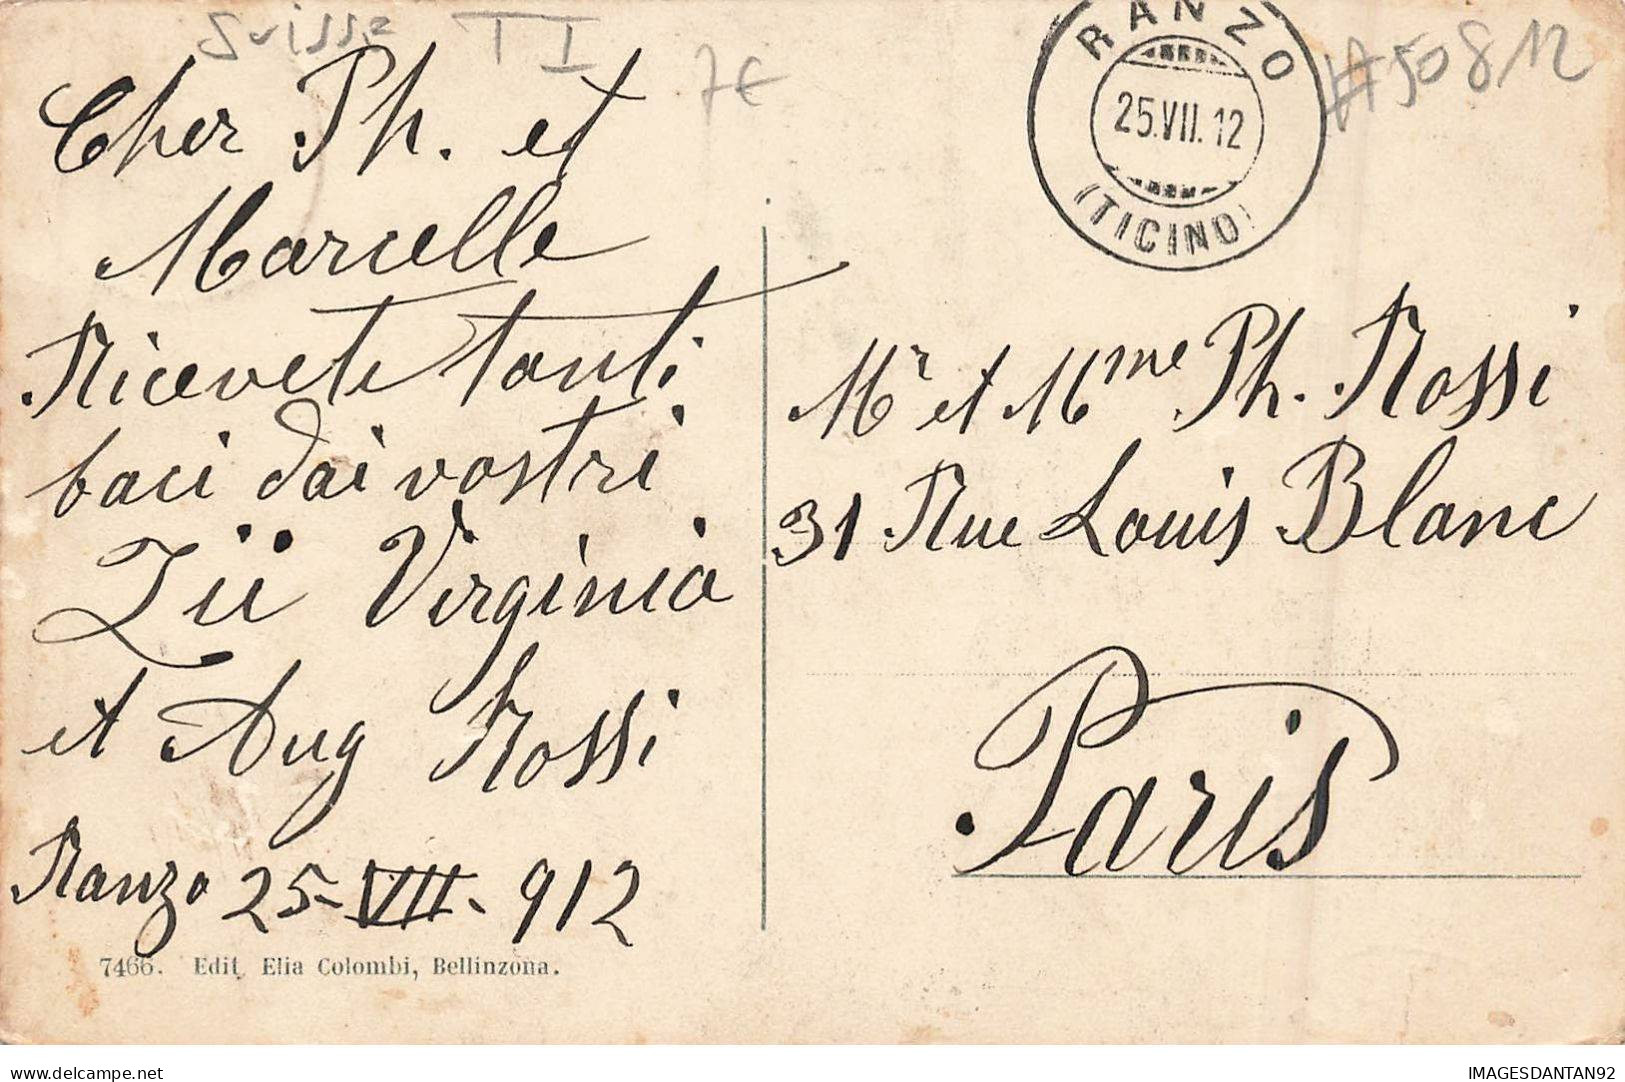 Suisse TI
7€
#50812
RANZO
25.VII.12
(TICINO)
Cher Ph. et
Marcelle
Ricevete tanti
baci dai vostri
Zii Virginia
et Aug Rossi
Ranzo 25-VII-912
7466. Edit. Elia Colombi, Bellinzona.
Mr et Mme Ph. Rossi
31 Rue Louis Blanc
Paris
delcampe.net
IMAGESDANTAN92